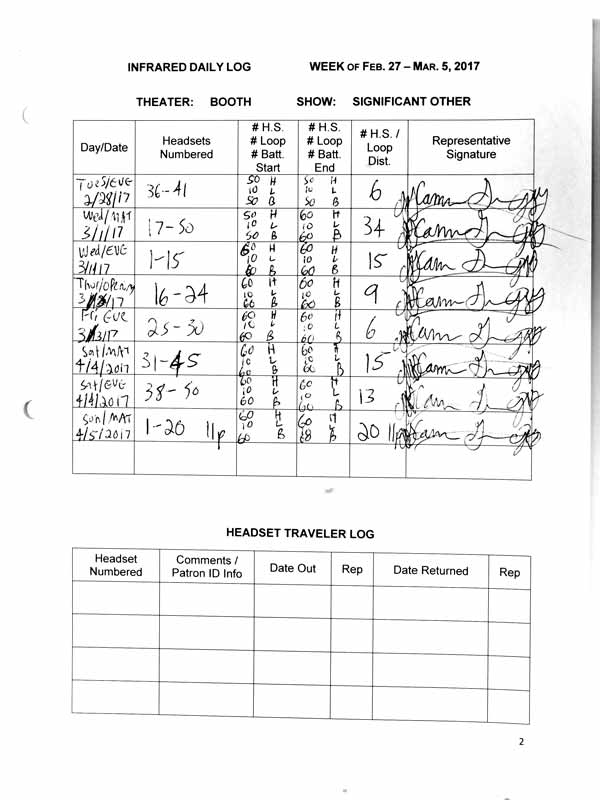 INFRARED DAILY LOG WEEK OF FEB. 27 – MAR. 5, 2017
THEATER: BOOTH SHOW: SIGNIFICANT OTHER
Day/Date Headsets Numbered # H.S. # Loop # Batt. Start # H.S. # Loop # Batt. End # H.S. / Loop Dist. Representative Signature
Tues/EVE 2/28/17 36-41 50 H 10 L 50 B 50 H 10 L 50 B 6
Wed/MAT 3/1/17 17-50 50 H 10 L 50 B 60 H 10 L 60 B 34
Wed/EVE 3/1/17 1-15 60 H 10 L 60 B 60 H 10 L 60 B 15
Thur/ 16-24 60 H 10 L 60 B 60 H 10 L 60 B 9
Fri EVE 25-30 60 H 10 L 60 B 60 H 10 L 60 B 6
Sat/MAT 4/4/2017 31-45 60 H 10 L 60 B 60 H 10 L 60 B 15
Sat/EVE 4/4/2017 38-50 60 H 10 L 60 B 60 H 10 L 60 B 13
Sun/MAT 4/5/2017 1-20 11p 60 H 10 L 60 B 60 H 10 L B 20 11p
HEADSET TRAVELER LOG
Headset Numbered Comments / Patron ID Info Date Out Rep Date Returned Rep
2